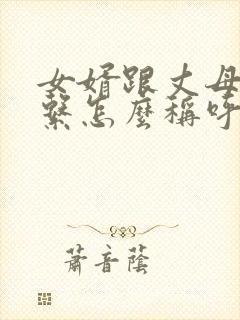 女婿跟丈母
繫怎麼稱呼
蕭音蔭